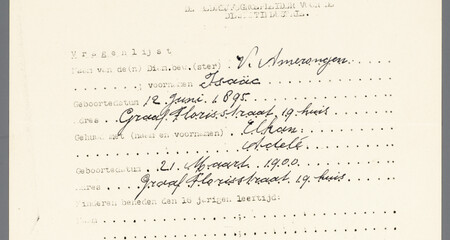 Vragenlijst
Naam van de(n) Dienbew.(ster) V. Amerongen.
; voornamen Isaäc
Geboortedatum 12 Juni 1895.
Adres Graaf Florisstraat 19 huis
(naam en voornamen) Elkan.
Adèle
Geboortedatum 21 Maart 1900.
Adres Graaf Florisstraat 19 huis.
Kinderen beneden den 16 jarigen leeftijd:
Naam